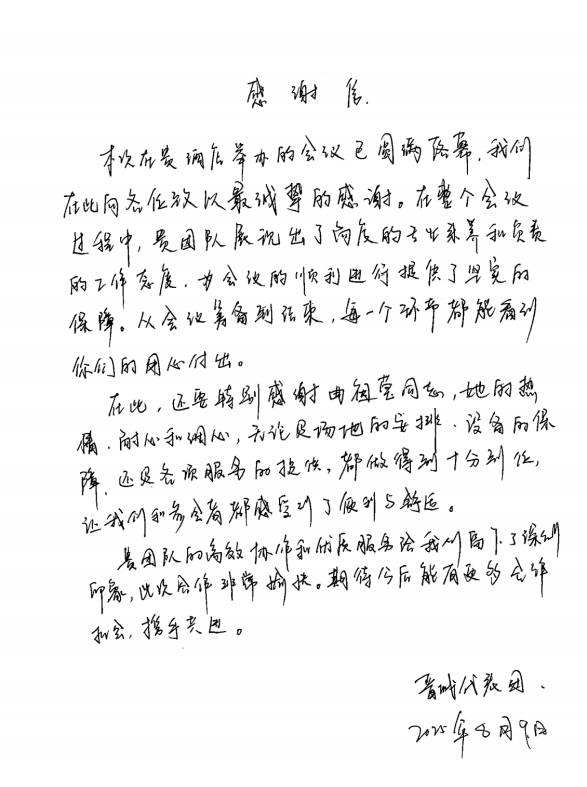 感谢信
本次在贵酒店举办的会议已圆满落幕,我们
在此向各位致以最诚挚的感谢。在整个会议
过程中,贵团队展现出了高度的专业素养和负责
的工作态度,为会议的顺利进行提供了坚实的
保障。从会议筹备到结束,每一个环节都能看到
你们的用心付出。
在此,还要特别感谢曲祖莹同志,她的热
情、耐心和细心,无论是场地的安排、设备的保
障,还是各项服务的提供,都做得到十分到位,
让我们和参会者都感受到了便利与舒适。
贵团队的高效协作和优质服务给我们留下了深刻
印象,此次合作非常愉快。期待今后能有更多合作
机会,携手共进。
晋城代表团.
2025年8月9日